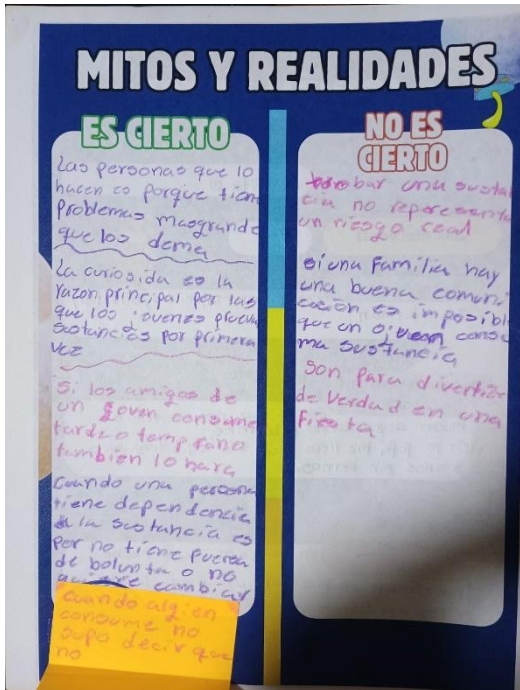 MITOS Y REALIDADES
ES CIERTO
Las personas que lo
hacen es porque tien
problemas masgrande
que los dema
La curiosida es la
razon principal por las
que los jovenes prueva
sustancias por primera
vez
Si los amigos de
un joven consume
tarde o temprano
tambien lo hara
Cuando una persona
tiene dependencia
a la sustancia es
por no tiene fuerza
de bolunta o no
quiere cambiar
Cuando algien
consume no
supo decir que
no
NO ES
CIERTO
probar una susta
cia no representa
un riesgo real
si una Familia hay
una buena comuni
cación, es imposibl
que un joven consu
ma sustancia
Son para divertirse
de verdad en una
Fiesta